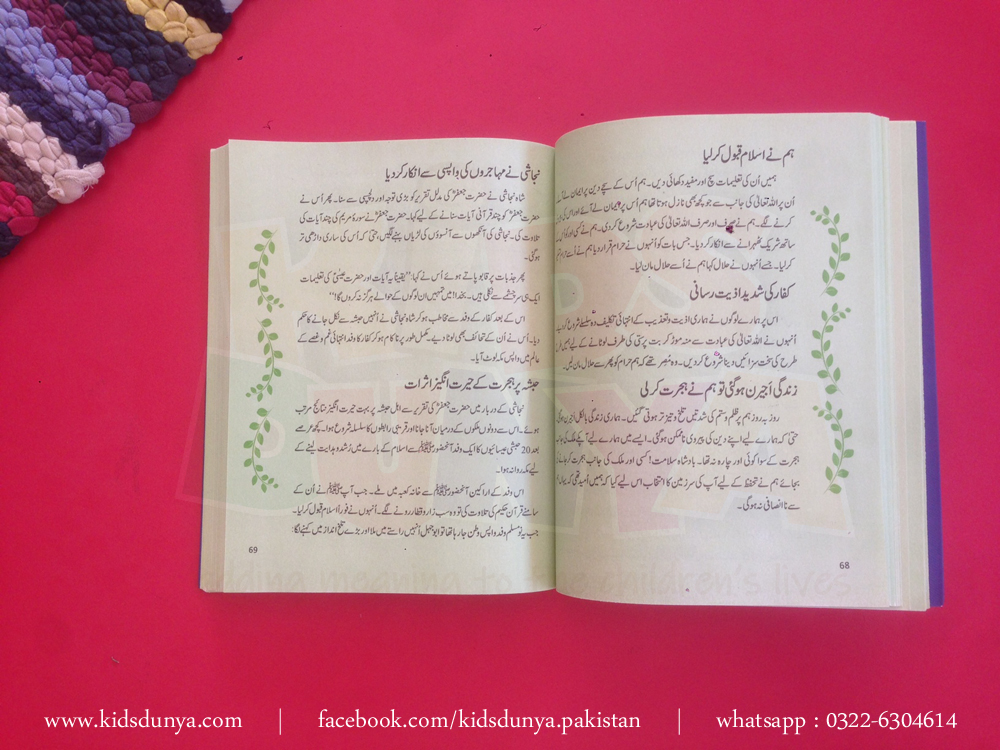 ہم نے اسلام قبول کر لیا
ہمیں اُن کی تعلیمات سچ اور مفید دکھائی دیں۔ ہم اُس کے سچے دین پر ایمان لے آئے
اُن پر اللہ تعالیٰ کی جانب سے جو کچھ بھی نازل ہوتا تھا ہم اُس پر ایمان لے آئے اور اس کی
کرنے لگے۔ ہم نے صرف اور صرف اللہ تعالیٰ کی عبادت شروع کر دی۔ ہم نے کسی اور کو اُس کے
ساتھ شریک ٹھہرانے سے انکار کر دیا۔ جس بات کو اُنہوں نے حرام قرار دیا ہم نے اُسے حرام
کر لیا۔ جسے اُنہوں نے حلال کہا ہم نے اُسے حلال مان لیا۔
کفار کی شدید اذیت رسانی
اس پر ہمارے لوگوں نے ہماری اذیت و تعذیب کے انتہائی تکلیف دہ سلسلے شروع کر دیے۔
اُنہوں نے اللہ تعالیٰ کی عبادت سے منہ موڑ کر بت پرستی کی طرف لوٹانے کے لیے ہمیں
طرح کی سخت سزائیں دینا شروع کر دیں۔ وہ مُصِر تھے کہ ہم حرام کو پھر سے حلال مان لیں۔
زندگی اُجیرن ہو گئی تو ہم نے ہجرت کر لی
روز بہ روز ہم پر ظلم و ستم کی شدتیں تلخ و تیز تر ہوتی گئیں۔ ہماری زندگی بالکل اجیرن ہو گئی
حتیٰ کہ ہمارے لیے اپنے دین کی پیروی ناممکن ہو گئی۔ ایسے میں ہمارے لیے اپنے ملک کی جانب
ہجرت کے سوا کوئی اور چارہ نہ تھا۔ بادشاہ سلامت! کسی اور ملک کی جانب ہجرت کر جانے
بجائے ہم نے تحفظ کے لیے آپ کی سرزمین کا انتخاب اس لیے کیا کہ ہمیں اُمید تھی کہ یہاں
سے ناانصافی نہ ہو گی۔
68
نجاشی نے مہاجروں کی واپسی سے انکار کر دیا
شاہ نجاشی نے حضرت جعفرؓ کی مدلل تقریر کو بڑی توجہ اور دلچسپی سے سنا۔ پھر اُس نے
حضرت جعفرؓ کو چند قرآنی آیات سنانے کے لیے کہا۔ حضرت جعفرؓ نے سورۂ مریم کی چند آیات کی
تلاوت کی۔ نجاشی کی آنکھوں سے آنسوؤں کی لڑیاں بہنے لگیں، حتیٰ کہ اُس کی ساری داڑھی تر
ہو گئی۔
پھر جذبات پر قابو پاتے ہوئے اُس نے کہا: ”یقیناً یہ آیات اور حضرت عیسیٰؑ کی تعلیمات
ایک ہی سرچشمے سے نکلی ہیں۔ بخدا! میں تمہیں ان لوگوں کے حوالے ہرگز نہ کروں گا!“
اس کے بعد کفار کے وفد سے مخاطب ہو کر شاہ نجاشی نے اُنہیں حبشہ سے نکل جانے کا حکم
دیا۔ اُس نے اُن کے تحائف بھی لوٹا دیے۔ مکمل طور پر ناکام ہو کر کفار کا وفد انتہائی غم و غصے کے
عالم میں واپس مکہ لوٹ آیا۔
حبشہ پر ہجرت کے حیرت انگیز اثرات
نجاشی کے دربار میں حضرت جعفرؓ کی تقریر سے اہل حبشہ پر بہت حیرت انگیز نتائج مرتب
ہوئے۔ اس سے دونوں ملکوں کے درمیان آنا جانا اور قریبی رابطوں کا سلسلہ شروع ہوا۔ کچھ عرصے
بعد 20 حبشی عیسائیوں کا ایک وفد آنحضورﷺ سے اسلام کے بارے میں رُشد و ہدایت لینے کے
لیے مکہ روانہ ہوا۔
اس وفد کے اراکین آنحضورﷺ سے خانہ کعبہ میں ملے۔ جب آپﷺ نے اُن کے
سامنے قرآن حکیم کی تلاوت کی تو وہ سب زار و قطار رونے لگے۔ اُنہوں نے فوراً اسلام قبول کر لیا۔
جب یہ نو مسلم وفد واپس وطن جا رہا تھا تو ابوجہل اُنہیں راستے میں ملا اور بڑے تلخ انداز میں کہنے لگا:
69
adding meaning to the children's lives
www.kidsdunya.com | facebook.com/kidsdunya.pakistan | whatsapp : 0322-6304614